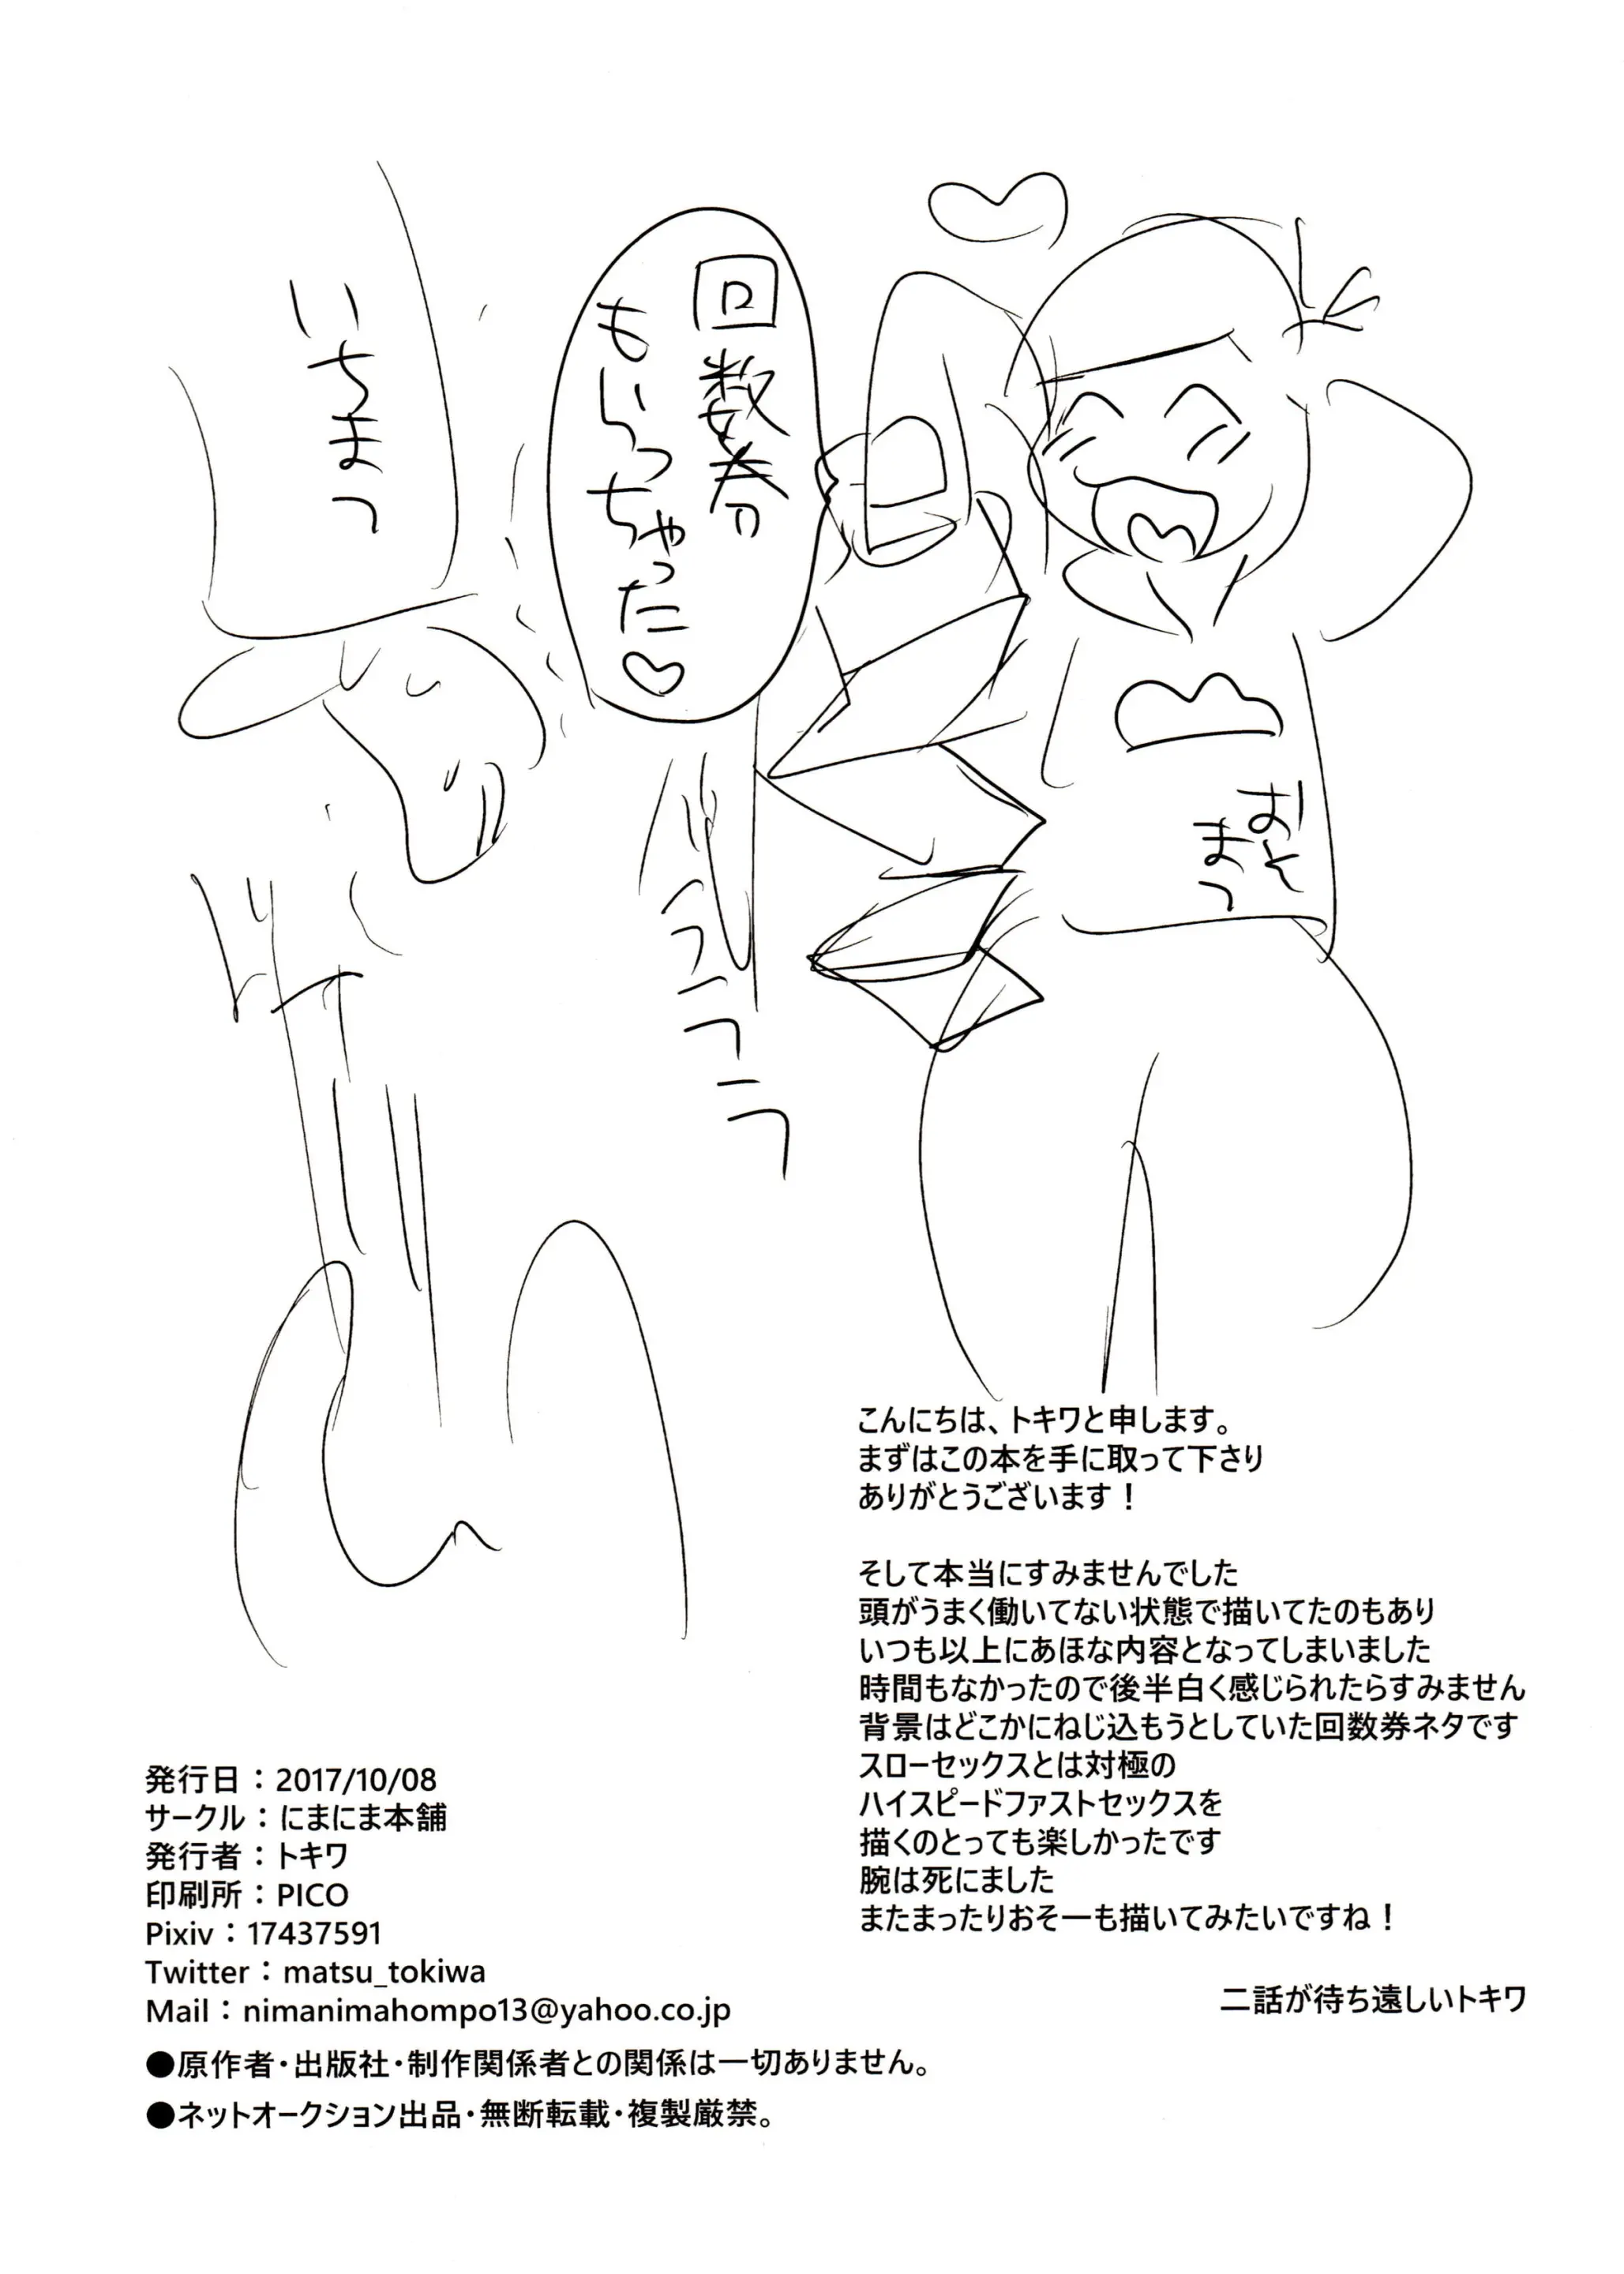 回数券
もらっちゃった♡
おそ
まつ
いちまつ
こんにちは、トキワと申します。
まずはこの本を手に取って下さり
ありがとうございます！
そして本当にすみませんでした
頭がうまく働いてない状態で描いてたのもあり
いつも以上にあほな内容となってしまいました
時間もなかったので後半白く感じられたらすみません
背景はどこかにねじ込もうとしていた回数券ネタです
スローセックスとは対極の
ハイスピードファストセックスを
描くのとっても楽しかったです
腕は死にました
またまったりおそ一も描いてみたいですね！
二話が待ち遠しいトキワ
発行日：2017/10/08
サークル：にまにま本舗
発行者：トキワ
印刷所：PICO
Pixiv：17437591
Twitter：matsu_tokiwa
Mail：nimanimahompo13@yahoo.co.jp
●原作者・出版社・制作関係者との関係は一切ありません。
●ネットオークション出品・無断転載・複製厳禁。